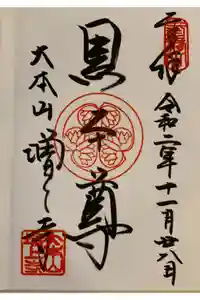 奉拝 令和二年十一月廿八日
黒本尊
大本山 増上寺